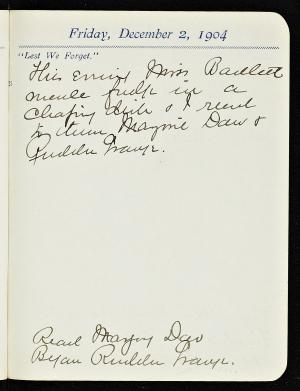 Friday, December 2, 1904
"Lest We Forget."
This evening Miss Bartlett
made fudge in a
chafing dish & I read
to them Marjorie Daw &
Rudder Grange.
Read Marjory Daw
Began Rudder Grange.